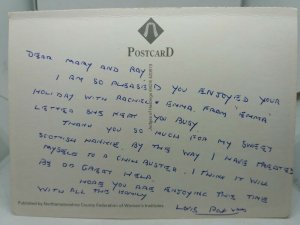 POSTCARD
DEAR MARY AND RAY
I AM SO PLEASED YOU ENJOYED YOUR
HOLIDAY WITH RACHEL + EMMA. FROM EMMA'
LETTER SHE KEPT YOU BUSY
THANK YOU SO MUCH FOR MY SWEET
SCOTTISH HANKIE. BY THE WAY I HAVE TREATED
MYSELF TO A CHILL BUSTER. I THINK IT WILL
BE OF GREAT HELP
HOPE YOU ARE ENJOYING THIS TIME
WITH ALL THE FAMILY
LOVE
Published by Northamptonshire County Federation of Women's Institutes